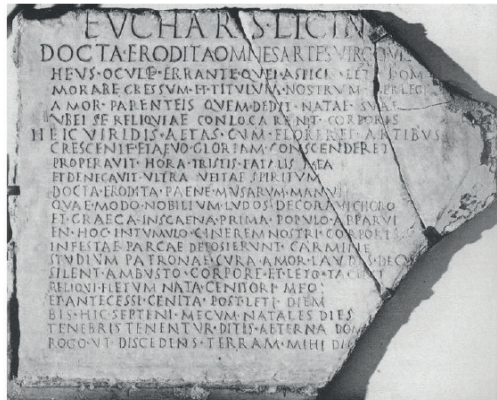 EVCHARIS·LICIN
DOCTA·ERODITA·OMNES·ARTES·VIRGO·VI
HEVS·OCVLO·ERRANTE·QVEI·ASPICIS·LETI·DOM
MORARE·GRESSVM·ET·TITVLVM·NOSTRVM·PERLEGE
AMOR·PARENTEIS·QVEM·DEDIT·NATAE·SVAE
VBEI·SE·RELIQVIAE·CONLOCARENT·CORPORIS
HEIC·VIRIDIS·AETAS·CVM·FLORERET·ARTIBVS
CRESCENTE·ET·AEVO·GLORIAM·CONSCENDERET
PROPERAVIT·HORA·TRISTIS·FATALIS·MEA
ET·DENEGAVIT·VLTRA·VEITAE·SPIRITVM
DOCTA·ERODITA·PAENE·MVSARVM·MANV
QVAE·MODO·NOBILIVM·LVDOS·DECORAVI·CHORO
ET·GRAECA·IN·SCAENA·PRIMA·POPVLO·APPARVI
EN·HOC·IN·TVMVLO·CINEREM·NOSTRI·CORPORIS
INFESTAE·PARCAE·DEPOSIERVNT·CARMINE
STVDIVM·PATRONAE·CVRA·AMOR·LAVDES·DECV
SILENT·AMBVSTO·CORPORE·ET·LETO·TACENT
RELIQVI·FLETVM·NATA·GENITORI·MEO
ET·ANTECESSI·GENITA·POST·LETI·DIEM
BIS·HIC·SEPTENI·MECVM·NATALES·DIES
TENEBRIS·TENENTVR·DITIS·AETERNA·DOM
ROGO·VT·DISCEDENS·TERRAM·MIHI·DIC